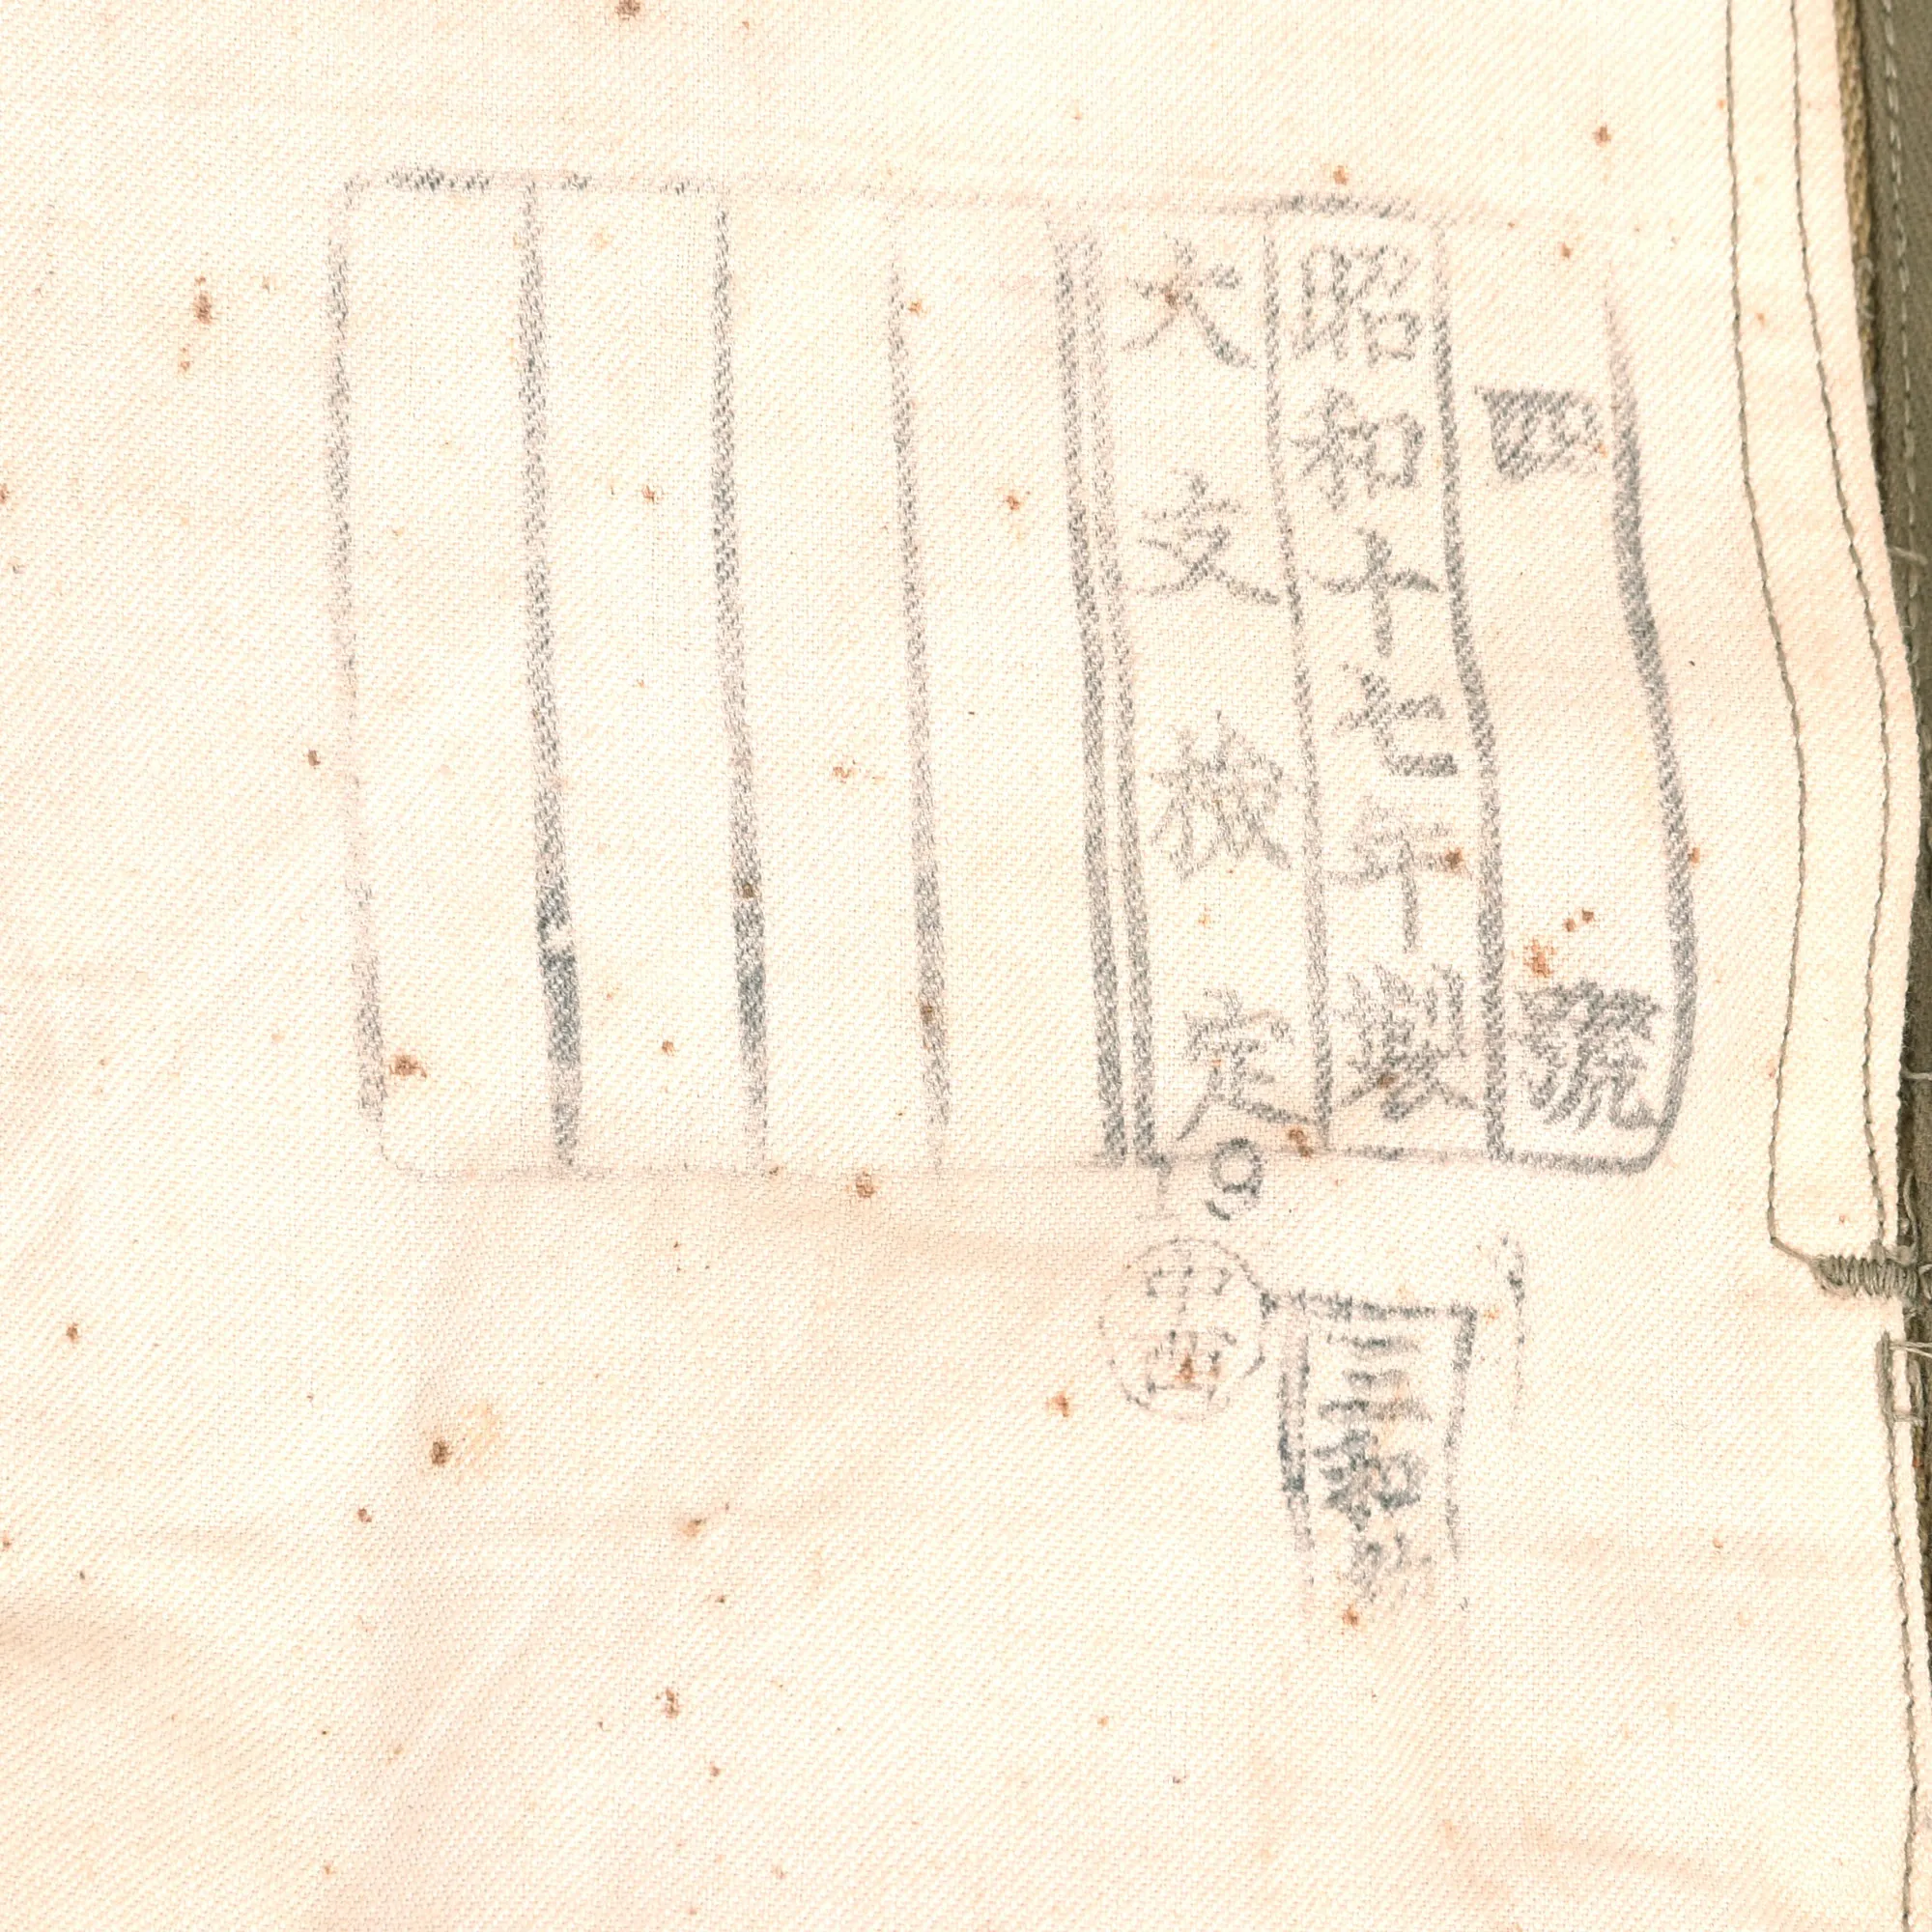 四號
昭和十七年製
大支検定
三和
中西